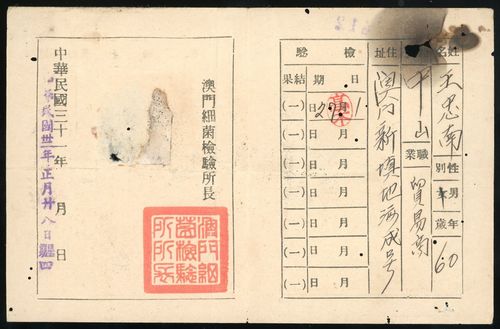 姓名 南 性別 男 年歲 60
中山 職業 貿易商
住址 新填地 成号
檢驗
日期 結果
27 月 1 日 (一)
月 日 (一)
月 日 (一)
月 日 (一)
月 日 (一)
月 日 (一)
月 日 (一)
澳門細菌檢驗所長
澳門細
菌檢驗
所所長
中華民國三十一年 月 日
民國卅一年正月廿八日